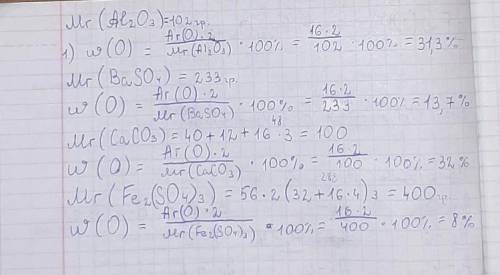 Mr (Al₂O₃)=102гр.
1) w (O) = Ar(O)·2 / Mr(Al₂O₃) · 100% = 16·2 / 102 · 100% = 31,3%
Mr (BaSO₄) = 233гр.
w (O) = Ar(O)·2 / Mr(BaSO₄) · 100% = 16·2 / 233 · 100% = 13,7%
48
Mr (CaCO₃) = 40+12+16·3 = 100
w (O) = Ar(O)·2 / Mr(CaCO₃) · 100% = 16·2 / 100 · 100% = 32%
288
Mr (Fe₂(SO₄)₃) = 56·2(32+16·4)3 = 400гр.
w (O) = Ar(O)·2 / Mr(Fe₂(SO₄)₃) · 100% = 16·2 / 400 · 100% = 8%